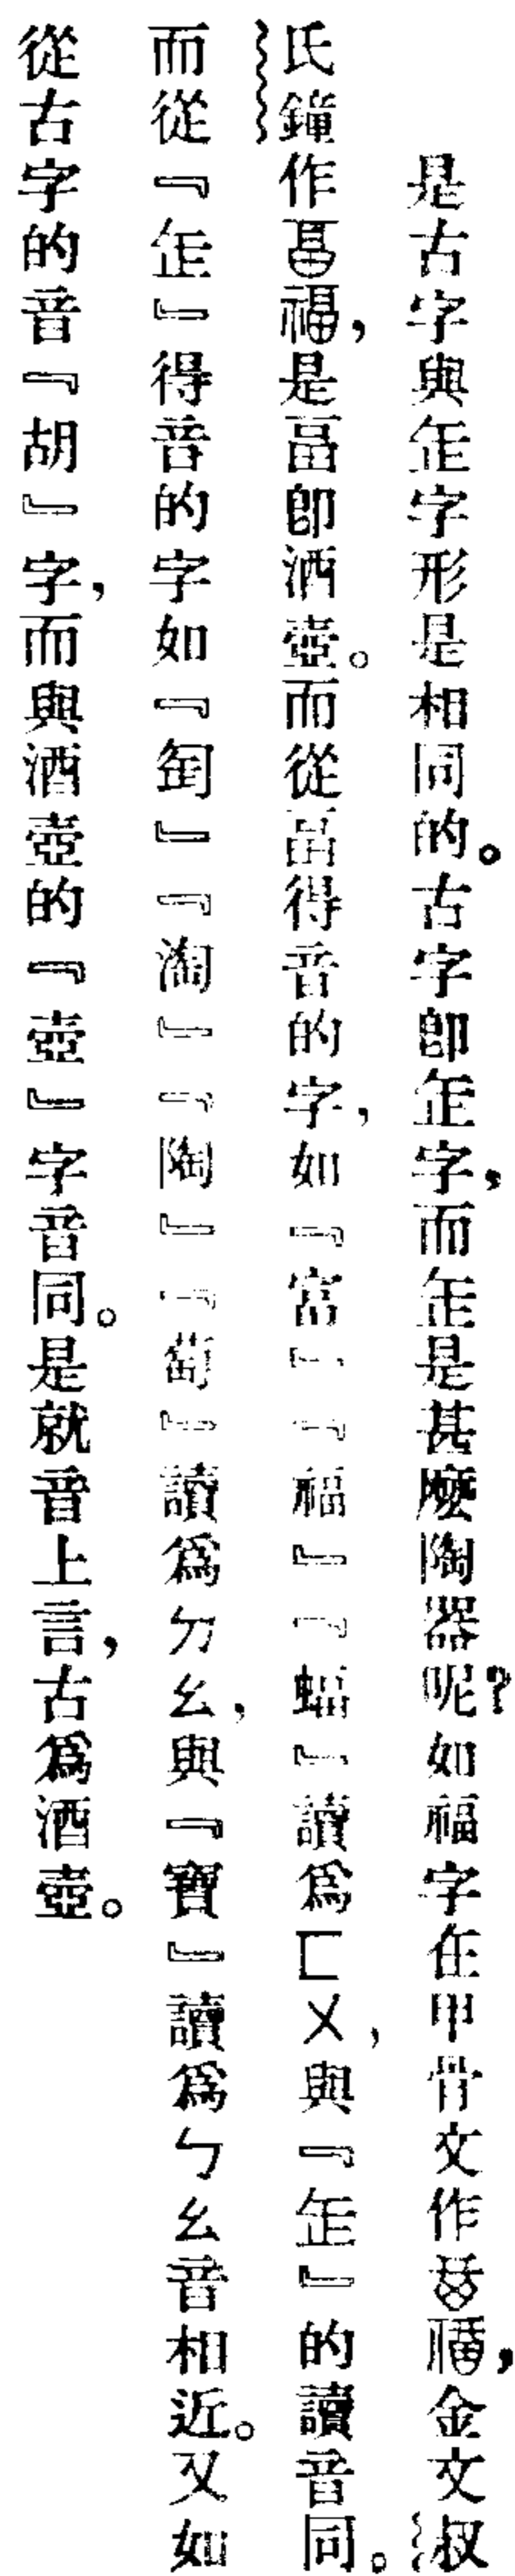 是古字與缶字形是相同的。古字卽缶字，而缶是甚麼陶器呢？如福字在甲骨文作，金文淑
氏鐘作福，是畐卽酒壺。而從畐得音的字，如『富』『福』『蝠』讀爲ㄈㄨ，與『缶』的讀音同。
而從『缶』得音的字如『匋』『淘』『陶』『萄』讀爲ㄉㄠ，與『寶』讀爲ㄅㄠ音相近。又如
從古字的音『胡』字，而與酒壺的『壺』字音同。是就音上言，古爲酒壺。